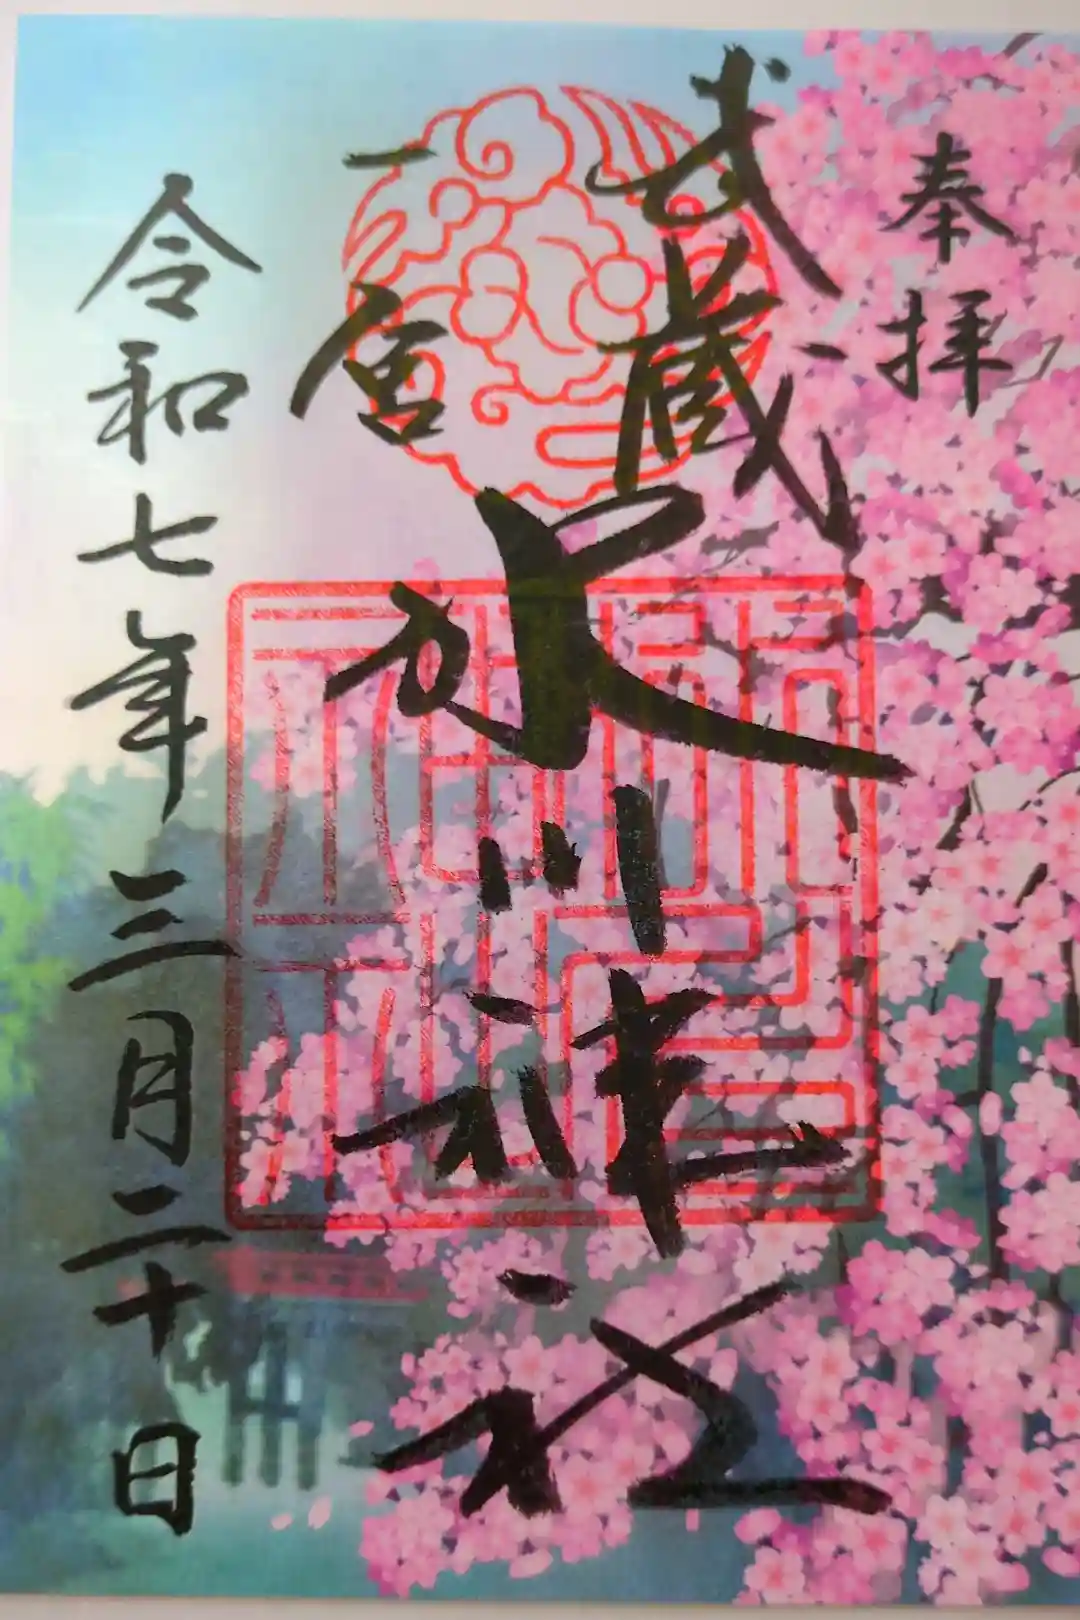 奉拝
武蔵
一宮
氷川神社
令和七年三月二十日